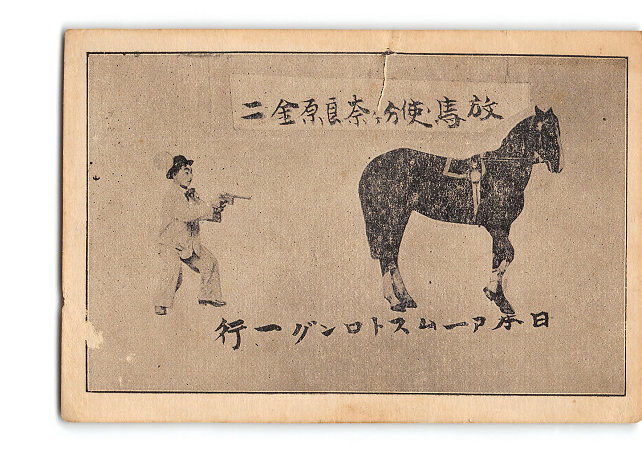 放馬使分奈良原金二
日本アームストロング一行